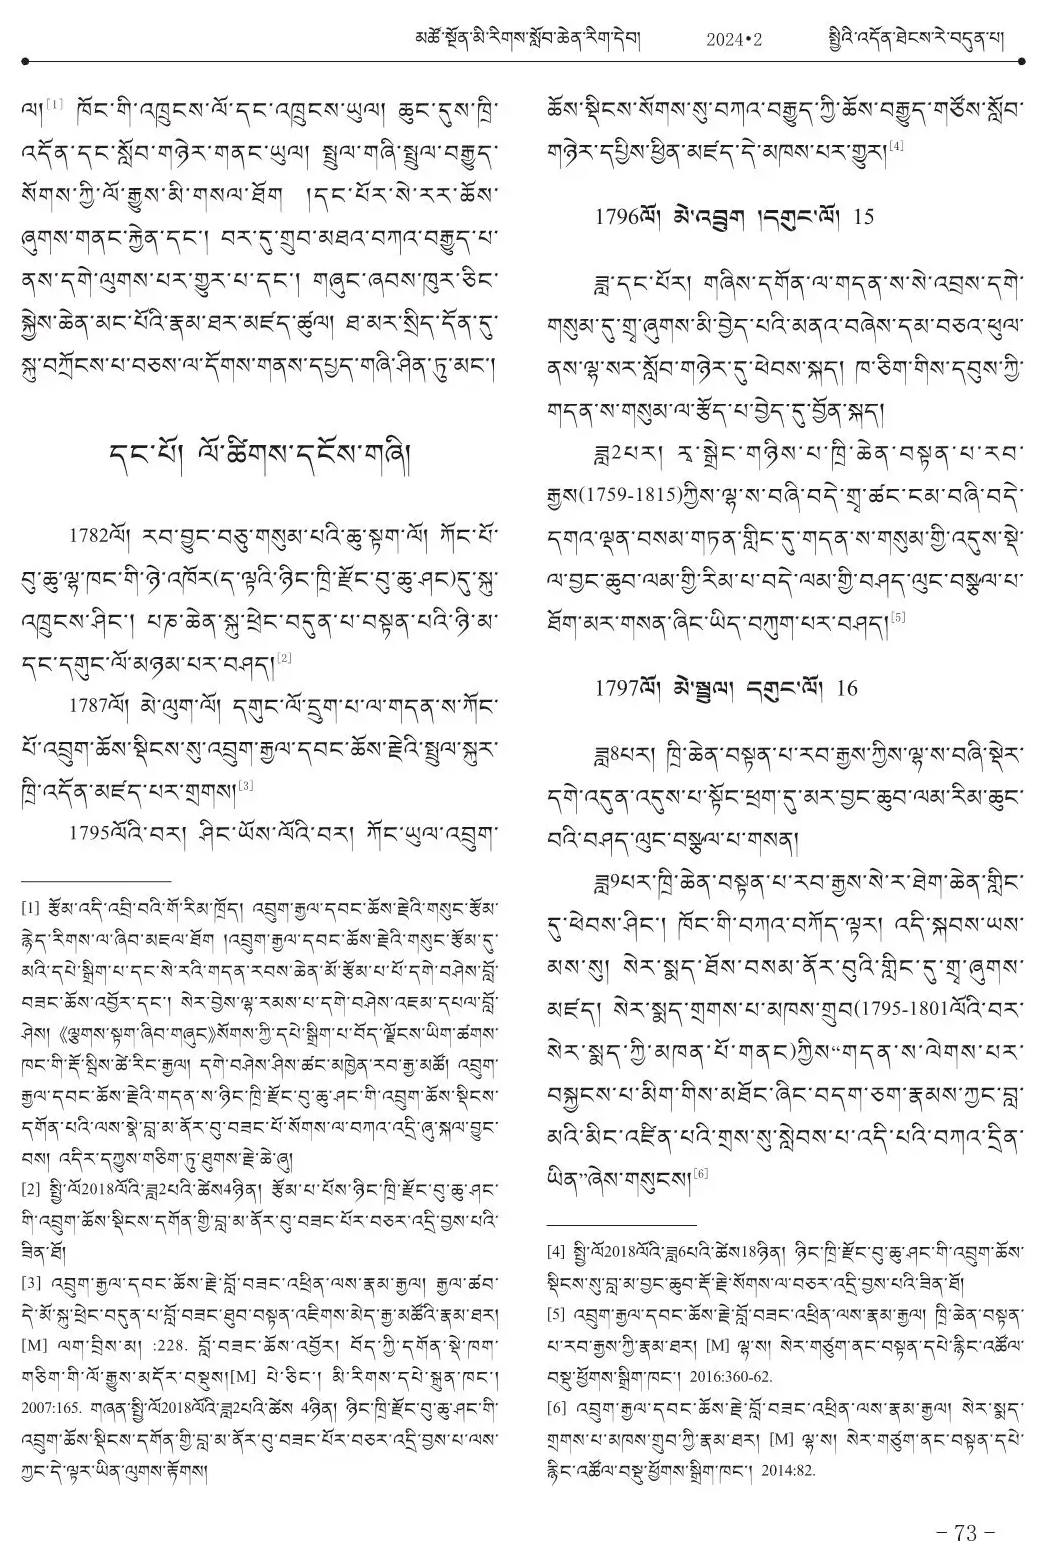 མཚོ་སྔོན་མི་རིགས་སློབ་ཆེན་རིག་དེབ། 2024•2 སྤྱིའི་འདོན་ཐེངས་རེ་བདུན་པ།
ལ།[1] ཁོང་གི་འཁྲུངས་ལོ་དང་འཁྲུངས་ཡུལ། ཆུང་དུས་ཁྲི་
འདོན་དང་སློབ་གཉེར་གནང་ཡུལ། སྤྲུལ་གཞི་སྤྲུལ་བརྒྱུད་
སོགས་ཀྱི་ལོ་རྒྱུས་མི་གསལ་ཐོག །དང་པོར་སེ་རར་ཆོས་
ཞུགས་གནང་རྐྱེན་དང་། བར་དུ་གྲུབ་མཐའ་བཀའ་བརྒྱུད་པ་
ནས་དགེ་ལུགས་པར་གྱུར་པ་དང་། གཞུང་ཞབས་ཁུར་ཅིང་
སྐྱེས་ཆེན་མང་པོའི་རྣམ་ཐར་མཛད་ཚུལ། ཐ་མར་སྲིད་དོན་དུ་
སྐུ་བཀྲོངས་པ་བཅས་ལ་དོགས་གནས་དཔྱད་གཞི་ཤིན་ཏུ་མང་།
དང་པོ། ལོ་ཚིགས་དངོས་གཞི།
1782ལོ། རབ་བྱུང་བཅུ་གསུམ་པའི་ཆུ་སྟག་ལོ། ཀོང་པོ་
བུ་ཆུ་ལྷ་ཁང་གི་ཉེ་འཁོར(ད་ལྟའི་ཉིང་ཁྲི་རྫོང་བུ་ཆུ་ཤང)དུ་སྐུ་
འཁྲུངས་ཤིང་། པཎ་ཆེན་སྐུ་ཕྲེང་བདུན་པ་བསྟན་པའི་ཉི་མ་
དང་དགུང་ལོ་མཉམ་པར་བཤད།[2]
1787ལོ། མེ་ལུག་ལོ། དགུང་ལོ་དྲུག་པ་ལ་གདན་ས་ཀོང་
པོ་འབྲུག་ཆོས་སྡིངས་སུ་འབྲུག་རྒྱལ་དབང་ཆོས་རྗེའི་སྤྲུལ་སྐུར་
ཁྲི་འདོན་མཛད་པར་གྲགས།[3]
1795ལོའི་བར། ཤིང་ཡོས་ལོའི་བར། ཀོང་ཡུལ་འབྲུག་
[1] རྩོམ་འདི་འབྲི་བའི་གོ་རིམ་ཁྲོད། འབྲུག་རྒྱལ་དབང་ཆོས་རྗེའི་གསུང་རྩོམ་
རྙེད་རིགས་ལ་ཞིབ་མཇལ་ཐོག །འབྲུག་རྒྱལ་དབང་ཆོས་རྗེའི་གསུང་རྩོམ་དུ་
མའི་དཔེ་སྒྲིག་པ་དང་སེ་རའི་གདན་རབས་ཆེན་མོ་རྩོམ་པ་པོ་དགེ་བཤེས་བློ་
བཟང་ཆོས་འབྱོར་དང་། སེར་བྱེས་ལྷ་རམས་པ་དགེ་བཤེས་འཇམ་དཔལ་བློ་
ཤེས། 《ལྕགས་སྟག་ཞིབ་གཞུང》སོགས་ཀྱི་དཔེ་སྒྲིག་པ་བོད་ལྗོངས་ཡིག་ཚགས་
ཁང་གི་རྡོ་སྤིས་ཚེ་རིང་རྒྱལ། དགེ་བཤེས་ཤིས་ཚང་མཁྱེན་རབ་རྒྱ་མཚོ། འབྲུག་
རྒྱལ་དབང་ཆོས་རྗེའི་གདན་ས་ཉིང་ཁྲི་རྫོང་བུ་ཆུ་ཤང་གི་འབྲུག་ཆོས་སྡིངས་
དགོན་པའི་ལས་སྣེ་བླ་མ་ནོར་བུ་བཟང་པོ་སོགས་ལ་བཀའ་འདྲི་ཞུ་སྐལ་བྱུང་
བས། འདིར་དཀྱུས་གཅིག་ཏུ་ཐུགས་རྗེ་ཆེ་ཞུ།
[2] སྤྱི་ལོ2018ལོའི་ཟླ2པའི་ཚེས4ཉིན། རྩོམ་པ་པོས་ཉིང་ཁྲི་རྫོང་བུ་ཆུ་ཤང་
གི་འབྲུག་ཆོས་སྡིངས་དགོན་གྱི་བླ་མ་ནོར་བུ་བཟང་པོར་བཅར་འདྲི་བྱས་པའི་
ཟིན་ཐོ།
[3] འབྲུག་རྒྱལ་དབང་ཆོས་རྗེ་བློ་བཟང་འཕྲིན་ལས་རྣམ་རྒྱལ། རྒྱལ་ཚབ་
དེ་མོ་སྐུ་ཕྲེང་བདུན་པ་བློ་བཟང་ཐུབ་བསྟན་འཇིགས་མེད་རྒྱ་མཚོའི་རྣམ་ཐར།
[M] ལག་བྲིས་མ། :228. བློ་བཟང་ཆོས་འབྱོར། བོད་ཀྱི་དགོན་སྡེ་ཁག་
གཅིག་གི་ལོ་རྒྱུས་མདོར་བསྡུས།[M] པེ་ཅིང་། མི་རིགས་དཔེ་སྐྲུན་ཁང་།
2007:165. གཞན་སྤྱི་ལོ2018ལོའི་ཟླ2པའི་ཚེས 4ཉིན། ཉིང་ཁྲི་རྫོང་བུ་ཆུ་ཤང་གི་
འབྲུག་ཆོས་སྡིངས་དགོན་གྱི་བླ་མ་ནོར་བུ་བཟང་པོར་བཅར་འདྲི་བྱས་པ་ལས་
ཀྱང་དེ་ལྟར་ཡིན་ལུགས་རྟོགས།
ཆོས་སྡིངས་སོགས་སུ་བཀའ་བརྒྱུད་ཀྱི་ཆོས་བརྒྱུད་གཙོས་སློབ་
གཉེར་དཔྱིས་ཕྱིན་མཛད་དེ་མཁས་པར་གྱུར།[4]
1796ལོ། མེ་འབྲུག །དགུང་ལོ། 15
ཟླ་དང་པོར། གཞིས་དགོན་ལ་གདན་ས་སེ་འབྲས་དགེ་
གསུམ་དུ་གྲྭ་ཞུགས་མི་བྱེད་པའི་མནའ་བཞེས་དམ་བཅའ་ཕུལ་
ནས་ལྷ་སར་སློབ་གཉེར་དུ་ཕེབས་སྐད། ཁ་ཅིག་གིས་དབུས་ཀྱི་
གདན་ས་གསུམ་ལ་རྩོད་པ་བྱེད་དུ་བྱོན་སྐད།
ཟླ2པར། རྭ་སྒྲེང་གཉིས་པ་ཁྲི་ཆེན་བསྟན་པ་རབ་
རྒྱས(1759-1815)ཀྱིས་ལྷ་ས་བཞི་བདེ་གྲྭ་ཚང་ངམ་བཞི་བདེ་
དགའ་ལྡན་བསམ་གཏན་གླིང་དུ་གདན་ས་གསུམ་གྱི་འདུས་སྡེ་
ལ་བྱང་ཆུབ་ལམ་གྱི་རིམ་པ་བདེ་ལམ་གྱི་བཤད་ལུང་བསྩལ་པ་
ཐོག་མར་གསན་ཞིང་ཡིད་བཀུག་པར་བཤད།[5]
1797ལོ། མེ་སྦྲུལ། དགུང་ལོ། 16
ཟླ8པར། ཁྲི་ཆེན་བསྟན་པ་རབ་རྒྱས་ཀྱིས་ལྷ་ས་བཞི་སྡེར་
དགེ་འདུན་འདུས་པ་སྟོང་ཕྲག་དུ་མར་བྱང་ཆུབ་ལམ་རིམ་ཆུང་
བའི་བཤད་ལུང་བསྩལ་པ་གསན།
ཟླ9པར་ཁྲི་ཆེན་བསྟན་པ་རབ་རྒྱས་སེ་ར་ཐེག་ཆེན་གླིང་
དུ་ཕེབས་ཤིང་། ཁོང་གི་བཀའ་བཀོད་ལྟར། འདི་སྐབས་ཡས་
མས་སུ། སེར་སྨད་ཐོས་བསམ་ནོར་བུའི་གླིང་དུ་གྲྭ་ཞུགས་
མཛད། སེར་སྨད་གྲགས་པ་མཁས་གྲུབ(1795-1801ལོའི་བར་
སེར་སྨད་ཀྱི་མཁན་པོ་གནང)ཀྱིས“གདན་ས་ལེགས་པར་
བསྐྱངས་པ་མིག་གིས་མཐོང་ཞིང་བདག་ཅག་རྣམས་ཀྱང་བླ་
མའི་མིང་འཛིན་པའི་གྲས་སུ་སླེབས་པ་འདི་པའི་བཀའ་དྲིན་
ཡིན”ཞེས་གསུངས།[6]
[4] སྤྱི་ལོ2018ལོའི་ཟླ6པའི་ཚེས18ཉིན། ཉིང་ཁྲི་རྫོང་བུ་ཆུ་ཤང་གི་འབྲུག་ཆོས་
སྡིངས་སུ་བླ་མ་བྱང་ཆུབ་རྡོ་རྗེ་སོགས་ལ་བཅར་འདྲི་བྱས་པའི་ཟིན་ཐོ།
[5] འབྲུག་རྒྱལ་དབང་ཆོས་རྗེ་བློ་བཟང་འཕྲིན་ལས་རྣམ་རྒྱལ། ཁྲི་ཆེན་བསྟན་
པ་རབ་རྒྱས་ཀྱི་རྣམ་ཐར། [M] ལྷ་ས། སེར་གཙུག་ནང་བསྟན་དཔེ་རྙིང་འཚོལ་
བསྡུ་ཕྱོགས་སྒྲིག་ཁང་། 2016:360-62.
[6] འབྲུག་རྒྱལ་དབང་ཆོས་རྗེ་བློ་བཟང་འཕྲིན་ལས་རྣམ་རྒྱལ། སེར་སྨད་
གྲགས་པ་མཁས་གྲུབ་ཀྱི་རྣམ་ཐར། [M] ལྷ་ས། སེར་གཙུག་ནང་བསྟན་དཔེ་
རྙིང་འཚོལ་བསྡུ་ཕྱོགས་སྒྲིག་ཁང་། 2014:82.
- 73 -